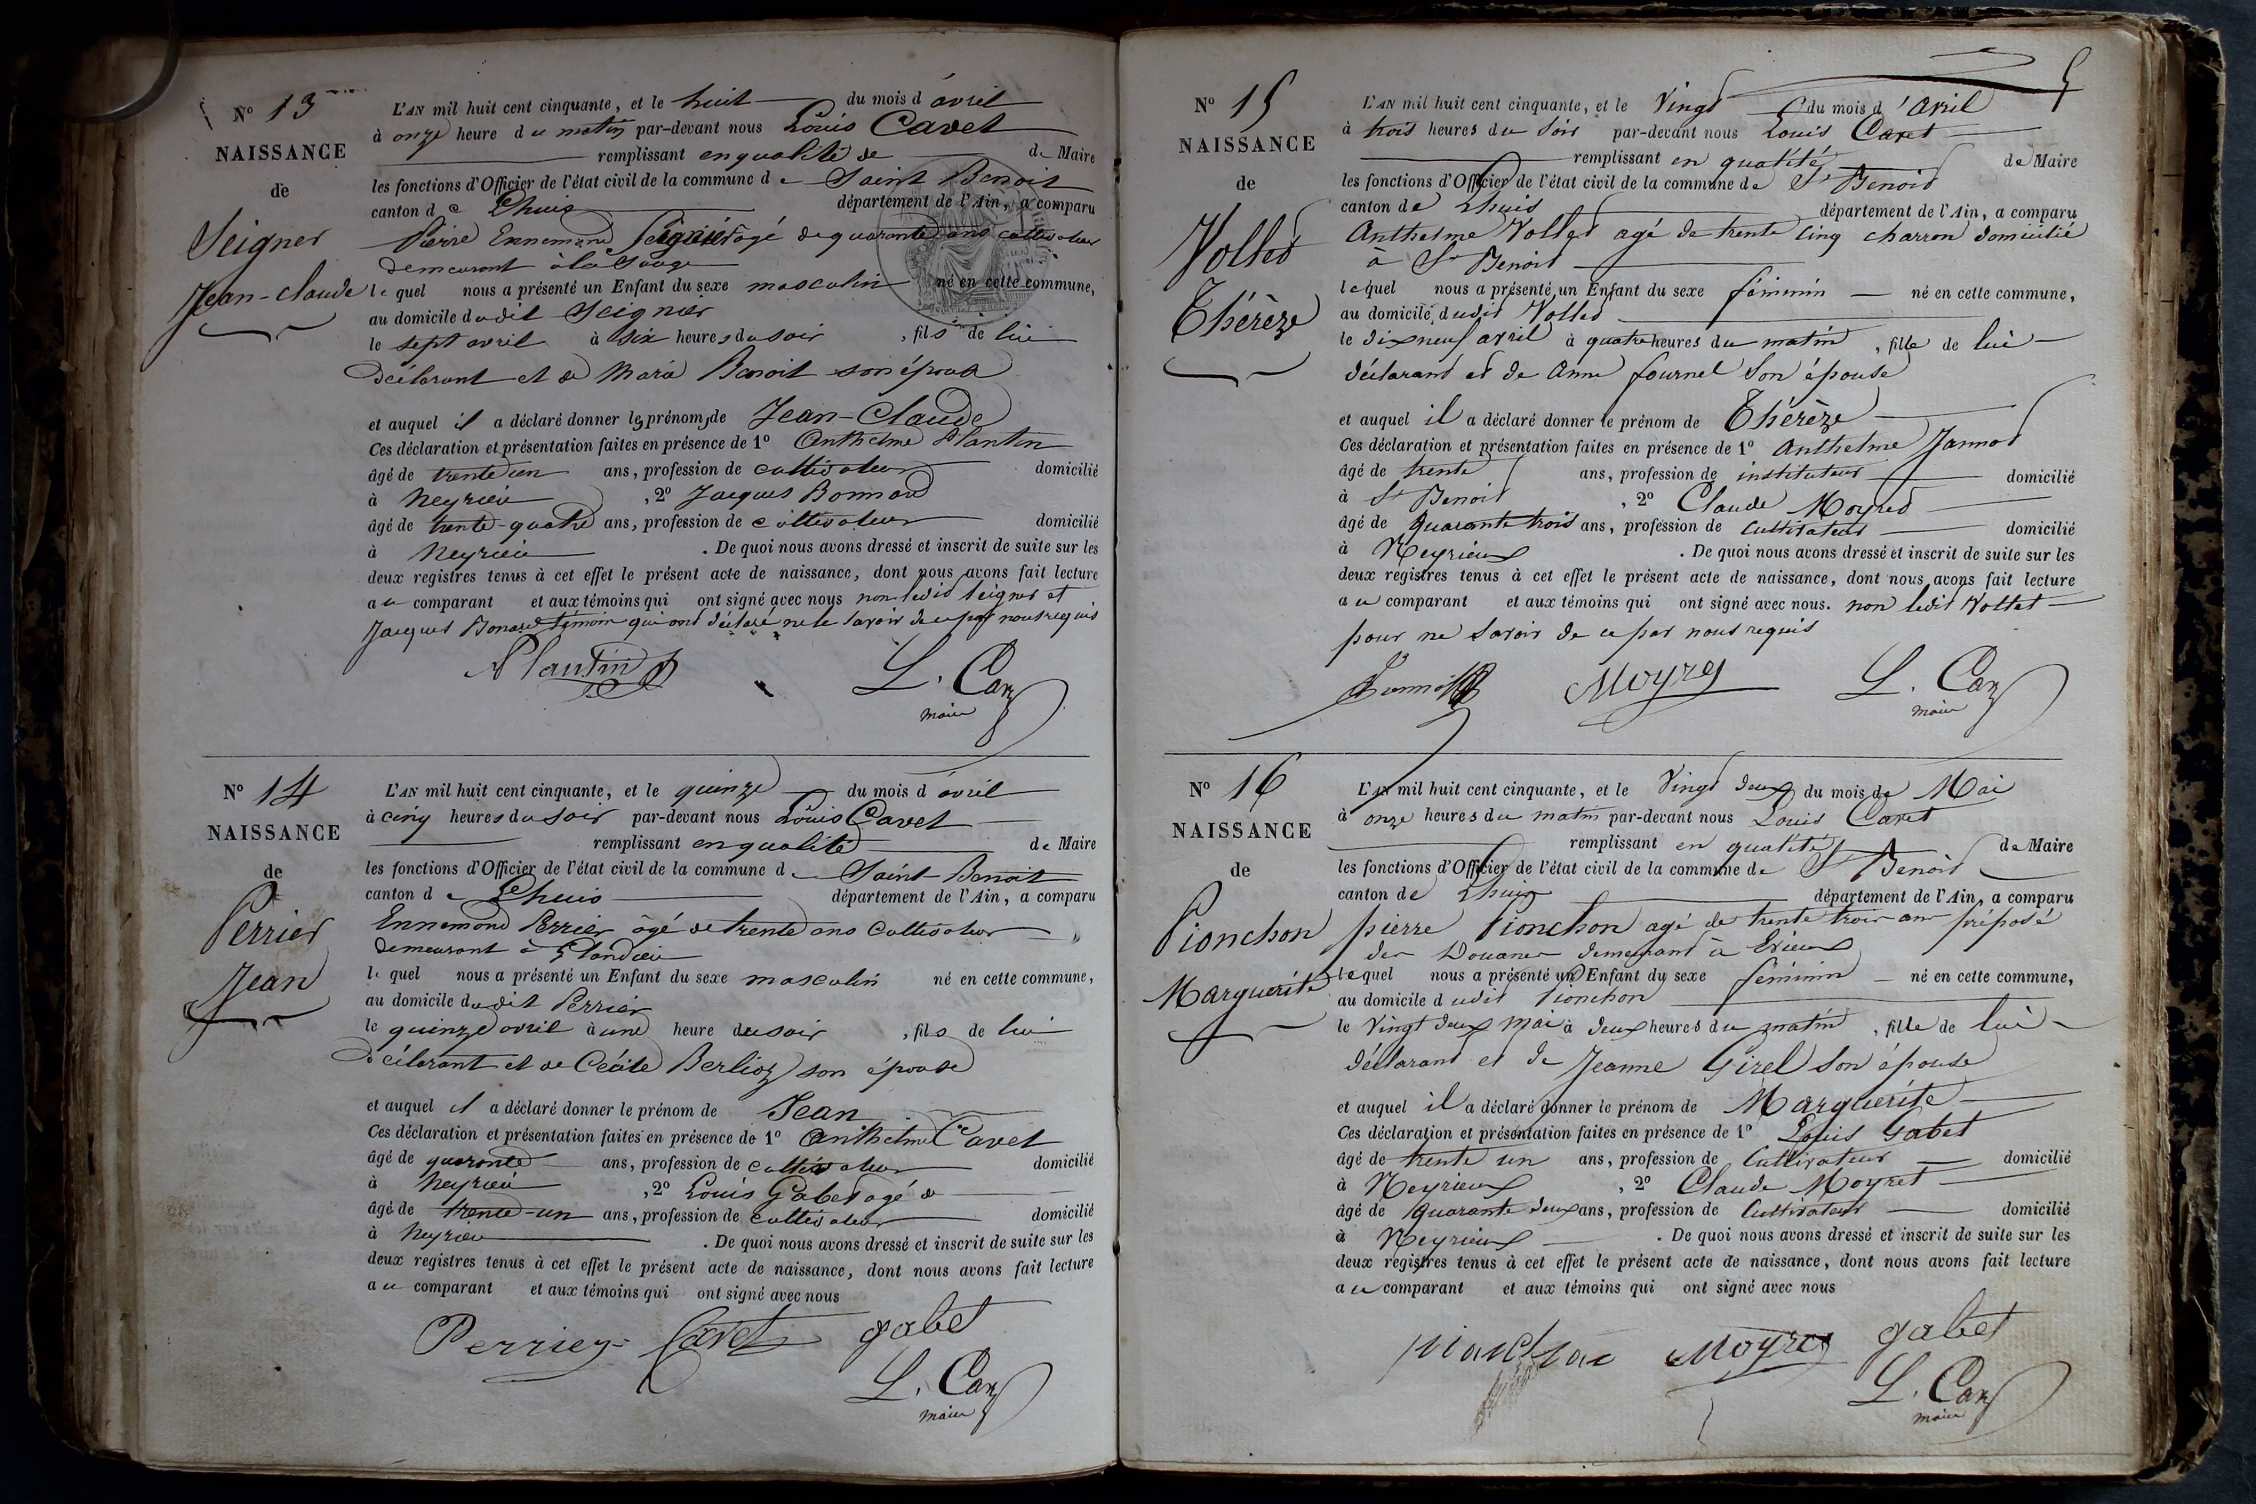 N° 13
NAISSANCE
de
Seigner
Jean-Claude
L'AN mil huit cent cinquante, et le huit du mois d'avril
à onze heure du matin par-devant nous Louis Cavet
remplissant en qualité de de Maire
les fonctions d'Officier de l'état civil de la commune de Saint Benoit
canton de Lhuis département de l'Ain, a comparu
Pierre Ennemond Seignier âgé de quarante ans cultivateur
demeurant à la Sauge
lequel nous a présenté un Enfant du sexe masculin né en cette commune,
au domicile dudit Seignier
le sept avril à six heures du soir, fils de lui
déclarant et de Marie Benoit son épouse
et auquel il a déclaré donner les prénoms de Jean-Claude
Ces déclaration et présentation faites en présence de 1° Anthelme Plantin
âgé de trente un ans, profession de cultivateur domicilié
à Neyrieu, 2° Jacques Bonnard
âgé de trente-quatre ans, profession de cultivateur domicilié
à Neyrieu. De quoi nous avons dressé et inscrit de suite sur les
deux registres tenus à cet effet le présent acte de naissance, dont nous avons fait lecture
au comparant et aux témoins qui ont signé avec nous non ledit Seigner et
Jacques Bonard témoin qui ont déclaré ne le savoir de ce par nous requis
Plantin
L. Cavet
maire
N° 14
NAISSANCE
de
Perrier
Jean
L'AN mil huit cent cinquante, et le quinze du mois d'avril
à cinq heures du soir par-devant nous Louis Cavet
remplissant en qualité de Maire
les fonctions d'Officier de l'état civil de la commune de Saint Benoit
canton de Lhuis département de l'Ain, a comparu
Ennemond Perrier âgé de trente ans cultivateur
demeurant à Glandieu
lequel nous a présenté un Enfant du sexe masculin né en cette commune,
au domicile dudit Perrier
le quinze avril à une heure du soir, fils de lui
déclarant et de Cécile Berlioz son épouse
et auquel il a déclaré donner le prénom de Jean
Ces déclaration et présentation faites en présence de 1° Anthelme Cavet
âgé de quarante ans, profession de cultivateur domicilié
à Neyrieu, 2° Louis Gabet agé de
âgé de trente-un ans, profession de cultivateur domicilié
à Neyrieu. De quoi nous avons dressé et inscrit de suite sur les
deux registres tenus à cet effet le présent acte de naissance, dont nous avons fait lecture
au comparant et aux témoins qui ont signé avec nous
Perrier Cavet gabet
L. Cavet
maire
5
N° 15
NAISSANCE
de
Vollet
Thérèze
L'AN mil huit cent cinquante, et le Vingt du mois d'Avril
à trois heures du soir par-devant nous Louis Cavet
remplissant en qualité de Maire
les fonctions d'Officier de l'état civil de la commune de St Benoit
canton de Lhuis département de l'Ain, a comparu
Anthelme Vollet agé de trente cinq charron domicilié
à St Benoit
lequel nous a présenté un Enfant du sexe féminin né en cette commune,
au domicile dudit Vollet
le dix neuf avril à quatre heures du matin, fille de lui
déclarant et de Anne fournel son épouse
et auquel il a déclaré donner le prénom de Thérèze
Ces déclaration et présentation faites en présence de 1° Anthelme Jannot
âgé de trente ans, profession de instituteur domicilié
à St Benoit, 2° Claude Moyret
âgé de quarante trois ans, profession de cultivateur domicilié
à Neyrieux. De quoi nous avons dressé et inscrit de suite sur les
deux registres tenus à cet effet le présent acte de naissance, dont nous avons fait lecture
au comparant et aux témoins qui ont signé avec nous. non ledit Vollet
pour ne savoir de ce par nous requis
Jannot Moyret L. Cavet
maire
N° 16
NAISSANCE
de
Pionchon
Marguerite
L'AN mil huit cent cinquante, et le Vingt deux du mois de Mai
à onze heures du matin par-devant nous Louis Cavet
remplissant en qualité de Maire
les fonctions d'Officier de l'état civil de la commune de St Benoit
canton de Lhuis département de l'Ain, a comparu
pierre Pionchon agé de trente trois ans préposé
des Douanes demeurant à Evieux
lequel nous a présenté un Enfant du sexe féminin né en cette commune,
au domicile dudit Pionchon
le Vingt deux mai à deux heures du matin, fille de lui
déclarant et de Jeanne Girel son épouse
et auquel il a déclaré donner le prénom de Marguérite
Ces déclaration et présentation faites en présence de 1° Louis Gabet
âgé de trente un ans, profession de Cultivateur domicilié
à Neyrieux, 2° Claude Moyret
âgé de quarante deux ans, profession de Cultivateur domicilié
à Neyrieux. De quoi nous avons dressé et inscrit de suite sur les
deux registres tenus à cet effet le présent acte de naissance, dont nous avons fait lecture
au comparant et aux témoins qui ont signé avec nous
Moyret gabet
L. Cavet
maire